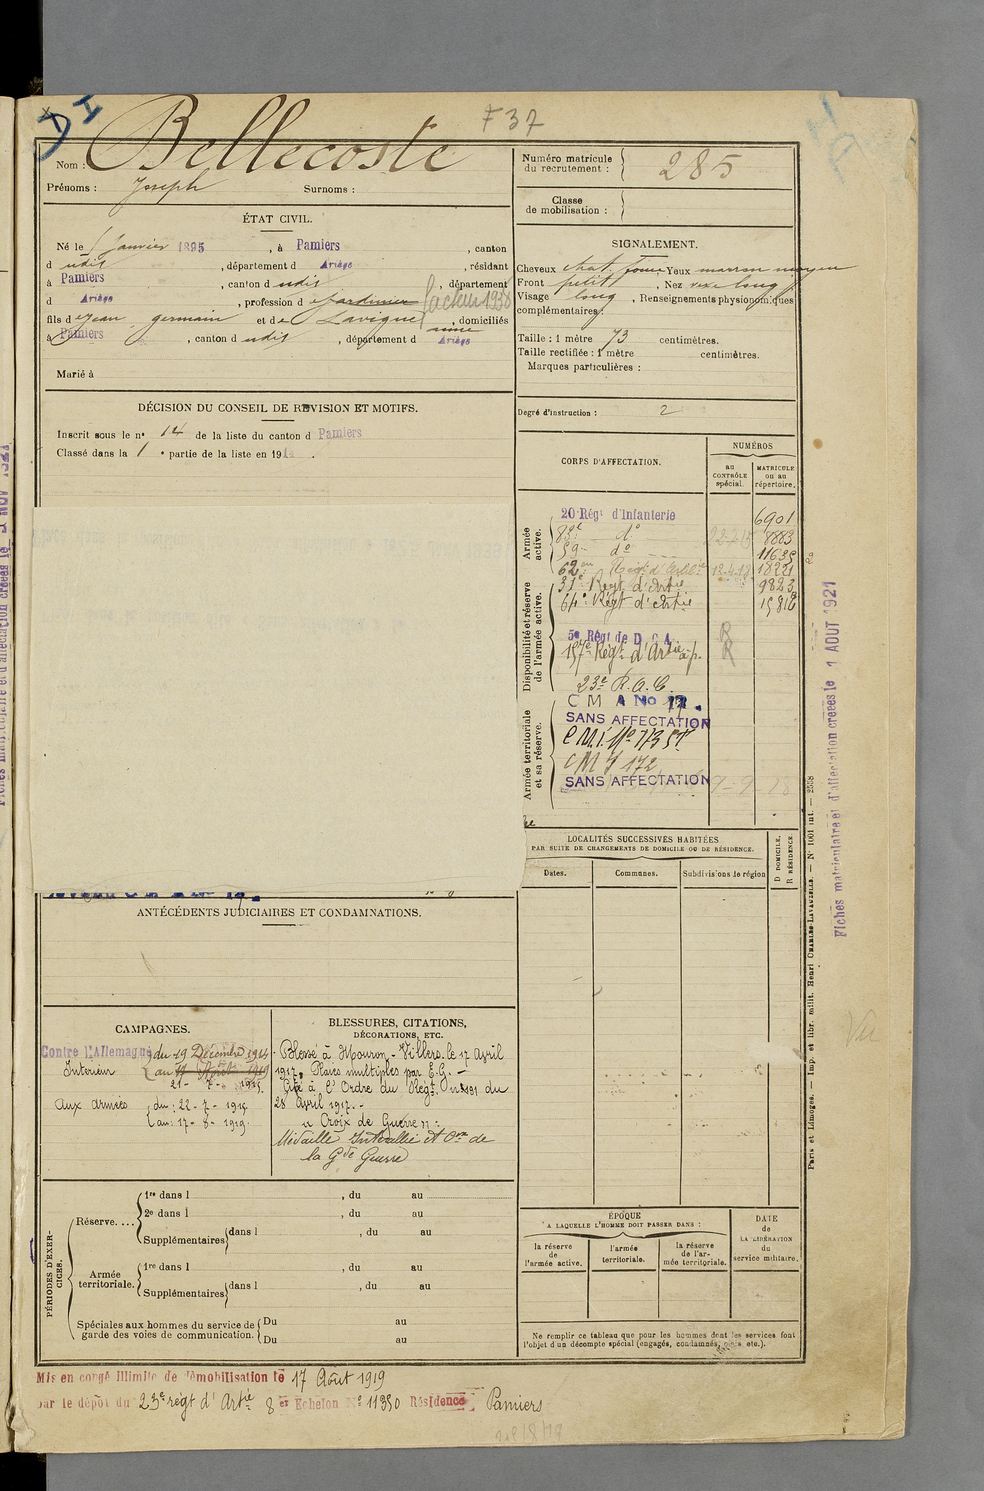 DI
F 37
Nom : Bellecoste
Prénoms : Joseph Surnoms :
Numéro matricule du recrutement : 285
Classe de mobilisation :
ÉTAT CIVIL.
Né le 1 Janvier 1895, à Pamiers, canton
d udit, département d Ariège, résidant
à Pamiers, canton d udit, département
d Ariège, profession d e Jardinier facteur 1930
fils d e Jean germain et d e Lavigne anne, domiciliés
à Pamiers, canton d udit, département d Ariège
Marié à
SIGNALEMENT.
Cheveux chat foncé Yeux marron moyen
Front petit, Nez long
Visage long, Renseignements physionomiques
complémentaires :
Taille : 1 mètre 73 centimètres.
Taille rectifiée : 1 mètre centimètres.
Marques particulières :
Degré d'instruction : 2
DÉCISION DU CONSEIL DE RÉVISION ET MOTIFS.
Inscrit sous le n° 14 de la liste du canton d Pamiers
Classé dans la 1 e partie de la liste en 191 .
CORPS D'AFFECTATION.
NUMÉROS
au CONTRÔLE spécial.
MATRICULE ou au répertoire.
Armée active.
20 Régt d'Infanterie 6901
83e do 8883
59e do 11635
62 Régt d'Artie
Disponibilité et réserve de l'armée active.
31e Régt d'Artie 9823
64e Régt d'Artie
5e Régt de D.C.A. R
Régt d'Artie à p. R
23e R.A.C.
Armée territoriale et sa réserve.
C M A No
SANS AFFECTATION
C M I
C M I 172
SANS AFFECTATION
LOCALITÉS SUCCESSIVES HABITÉES
PAR SUITE DE CHANGEMENTS DE DOMICILE OU DE RÉSIDENCE.
Dates. Communes. Subdivisions de région
D DOMICILE. R RÉSIDENCE.
ANTÉCÉDENTS JUDICIAIRES ET CONDAMNATIONS.
CAMPAGNES.
Contre l'Allemagne du 19 Décembre 1914
Intérieur au
21 - 7 - 1915.
aux armées du : 22 - 7 - 1915
au : 17 - 8 - 1919.
BLESSURES, CITATIONS,
DÉCORATIONS, ETC.
Blessé à Mouron-Villers le 17 avril
1917, Plaies multiples par E.O. -
Cité à l'Ordre du Régt. n° 191 du
28 avril 1917. -
" Croix de Guerre "
Médaille Interalliée et Ove de
la Gde Guerre
PÉRIODES D'EXERCICES.
Réserve....
1re dans l , du au
2e dans l , du au
Supplémentaires dans l , du au
Armée territoriale.
1re dans l , du au
Supplémentaires dans l , du au
Spéciales aux hommes du service de garde des voies de communication.
Du au
Du au
ÉPOQUE
A LAQUELLE L'HOMME DOIT PASSER DANS :
la réserve de l'armée active.
l'armée territoriale.
la réserve de l'armée territoriale.
DATE de LA LIBÉRATION du service militaire.
Ne remplir ce tableau que pour les hommes dont les services font
l'objet d'un décompte spécial (engagés, condamnés, omis etc.).
Mis en congé illimité de démobilisation le 17 Août 1919
par le dépôt du 23e régt d'Artie 8er Echelon N° 11350 Résidence Pamiers
Fiches matriculaire et d'affectation créées le 1 AOUT 1921
Paris et Limoges. — Imp. et libr. milit. Henri CHARLES-LAVAUZELLE. — N° 1001 int. — 2558